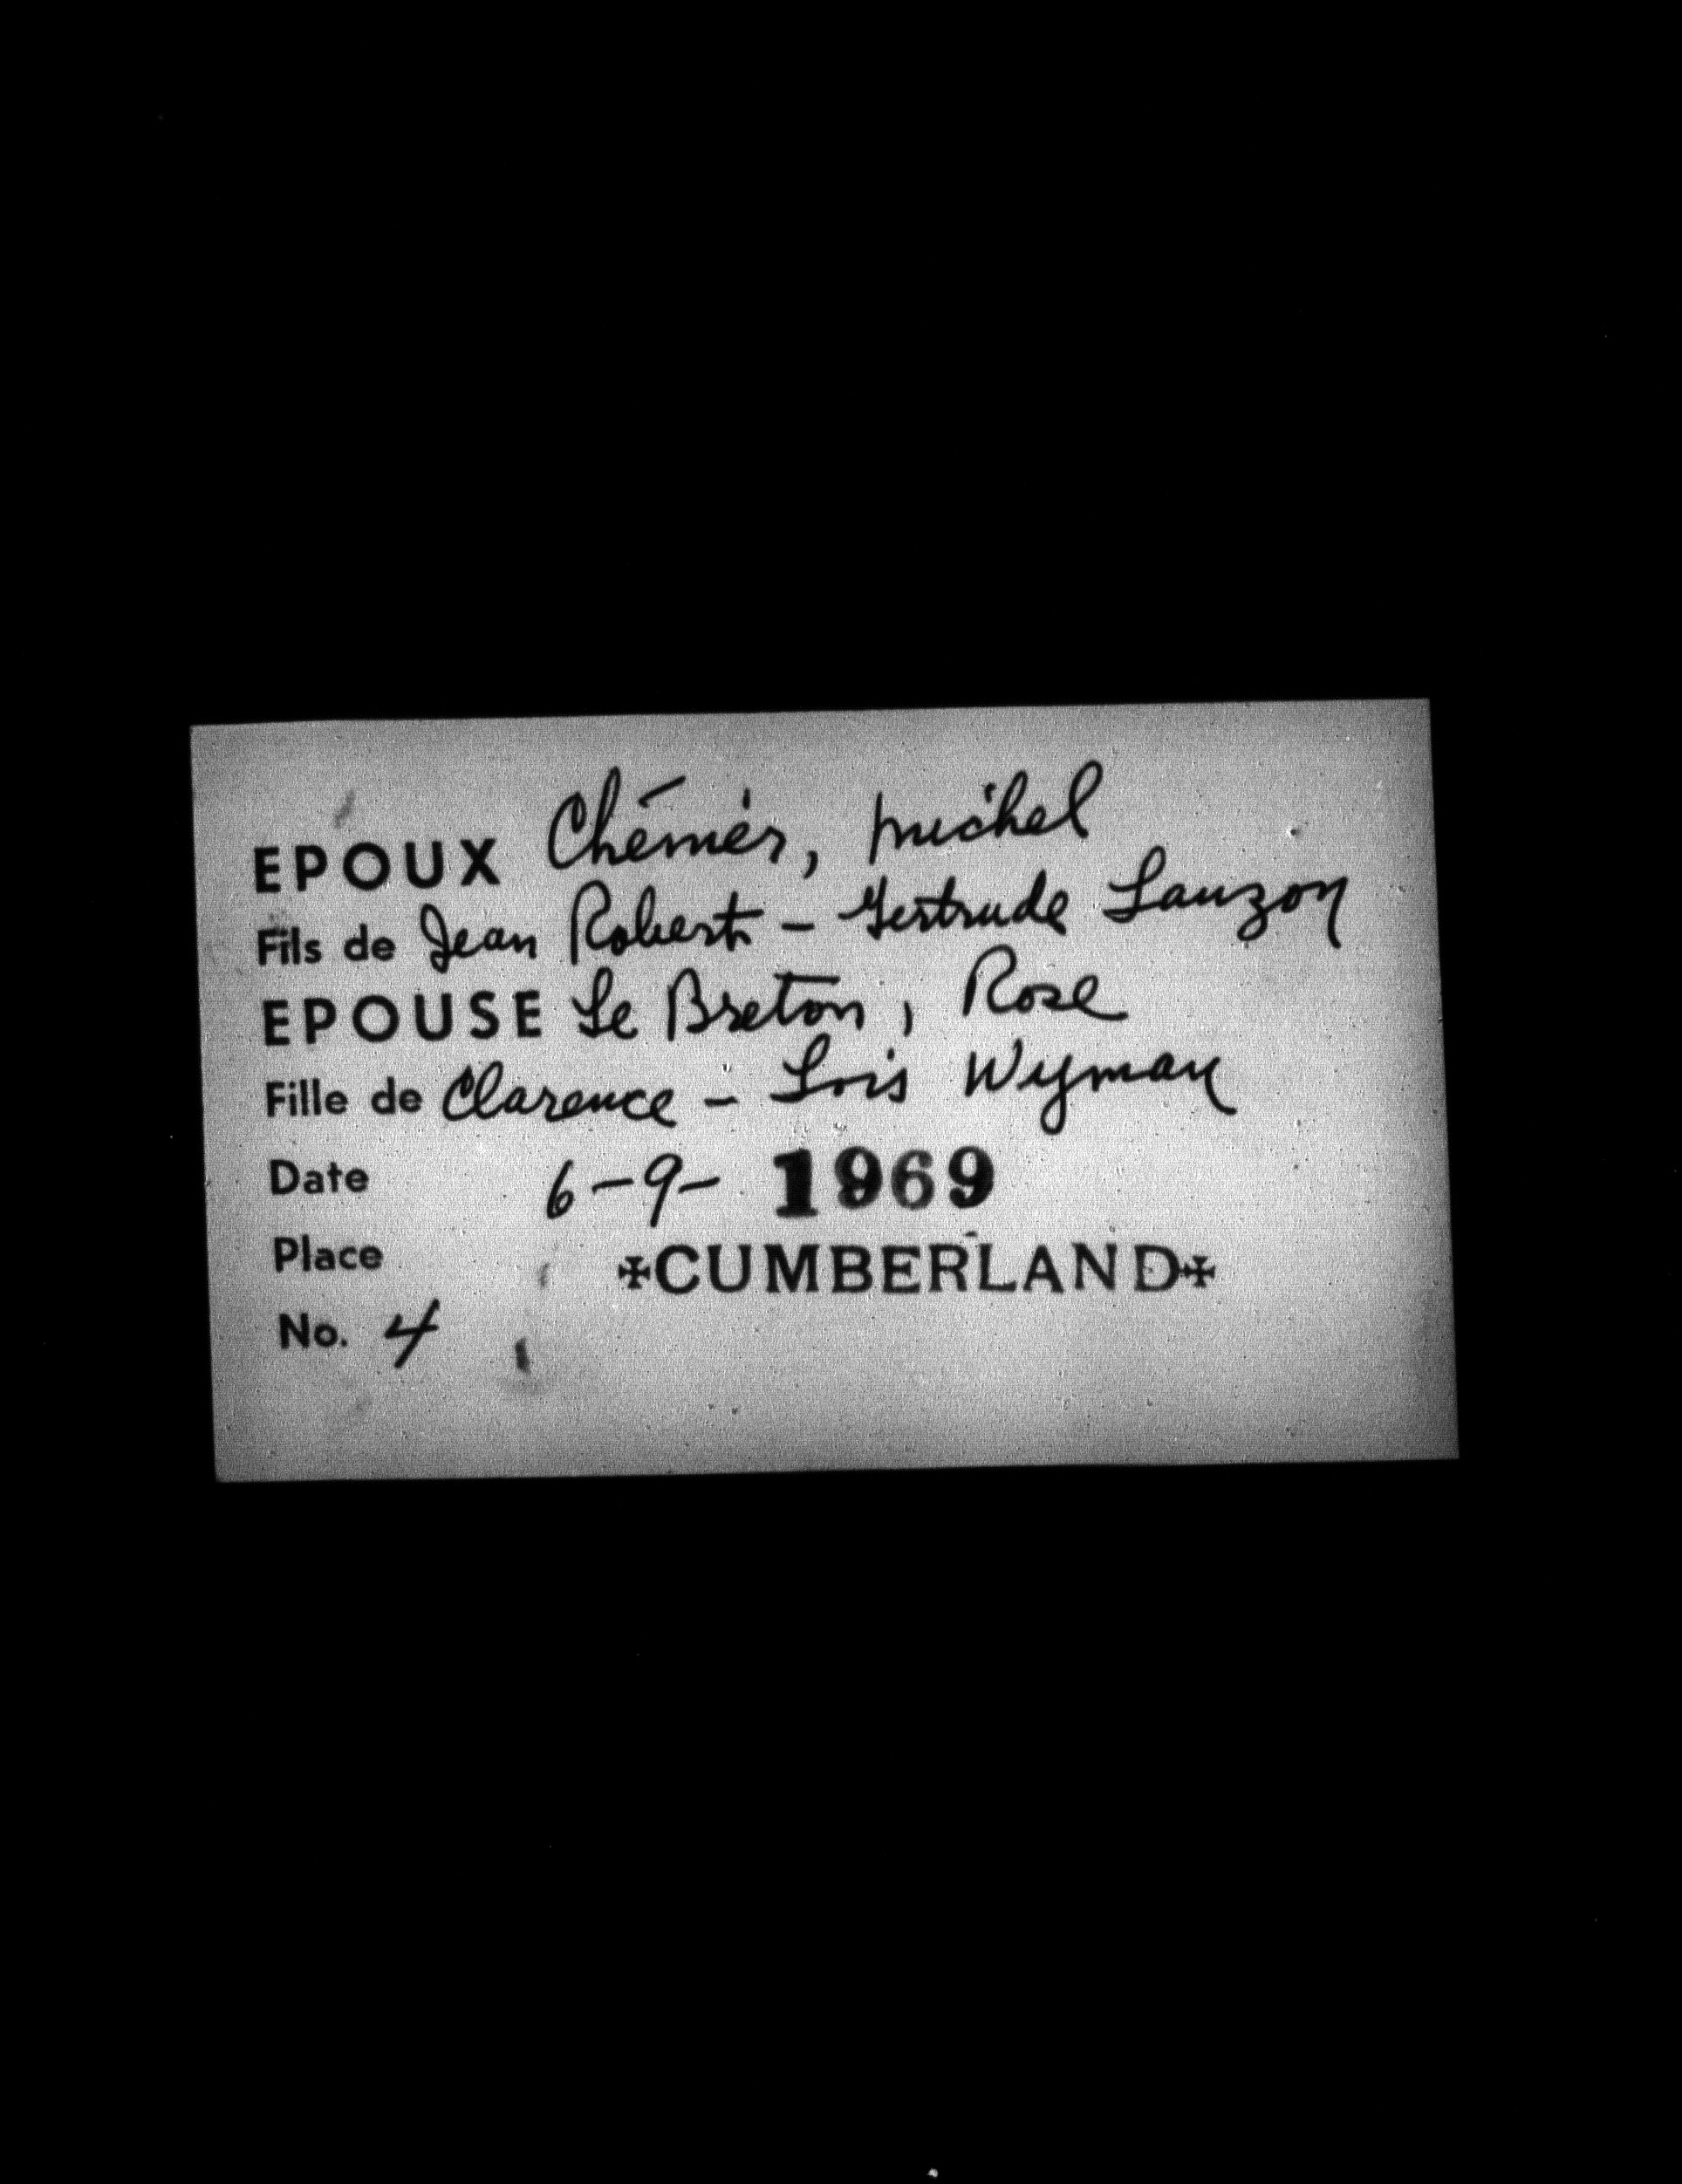 EPOUX Chénier, Michel
Fils de Jean Robert - Gertrude Lauzon
EPOUSE Le Breton, Rose
Fille de Clarence - Lois Wyman
Date 6-9- 1969
Place ✠CUMBERLAND✠
No. 4